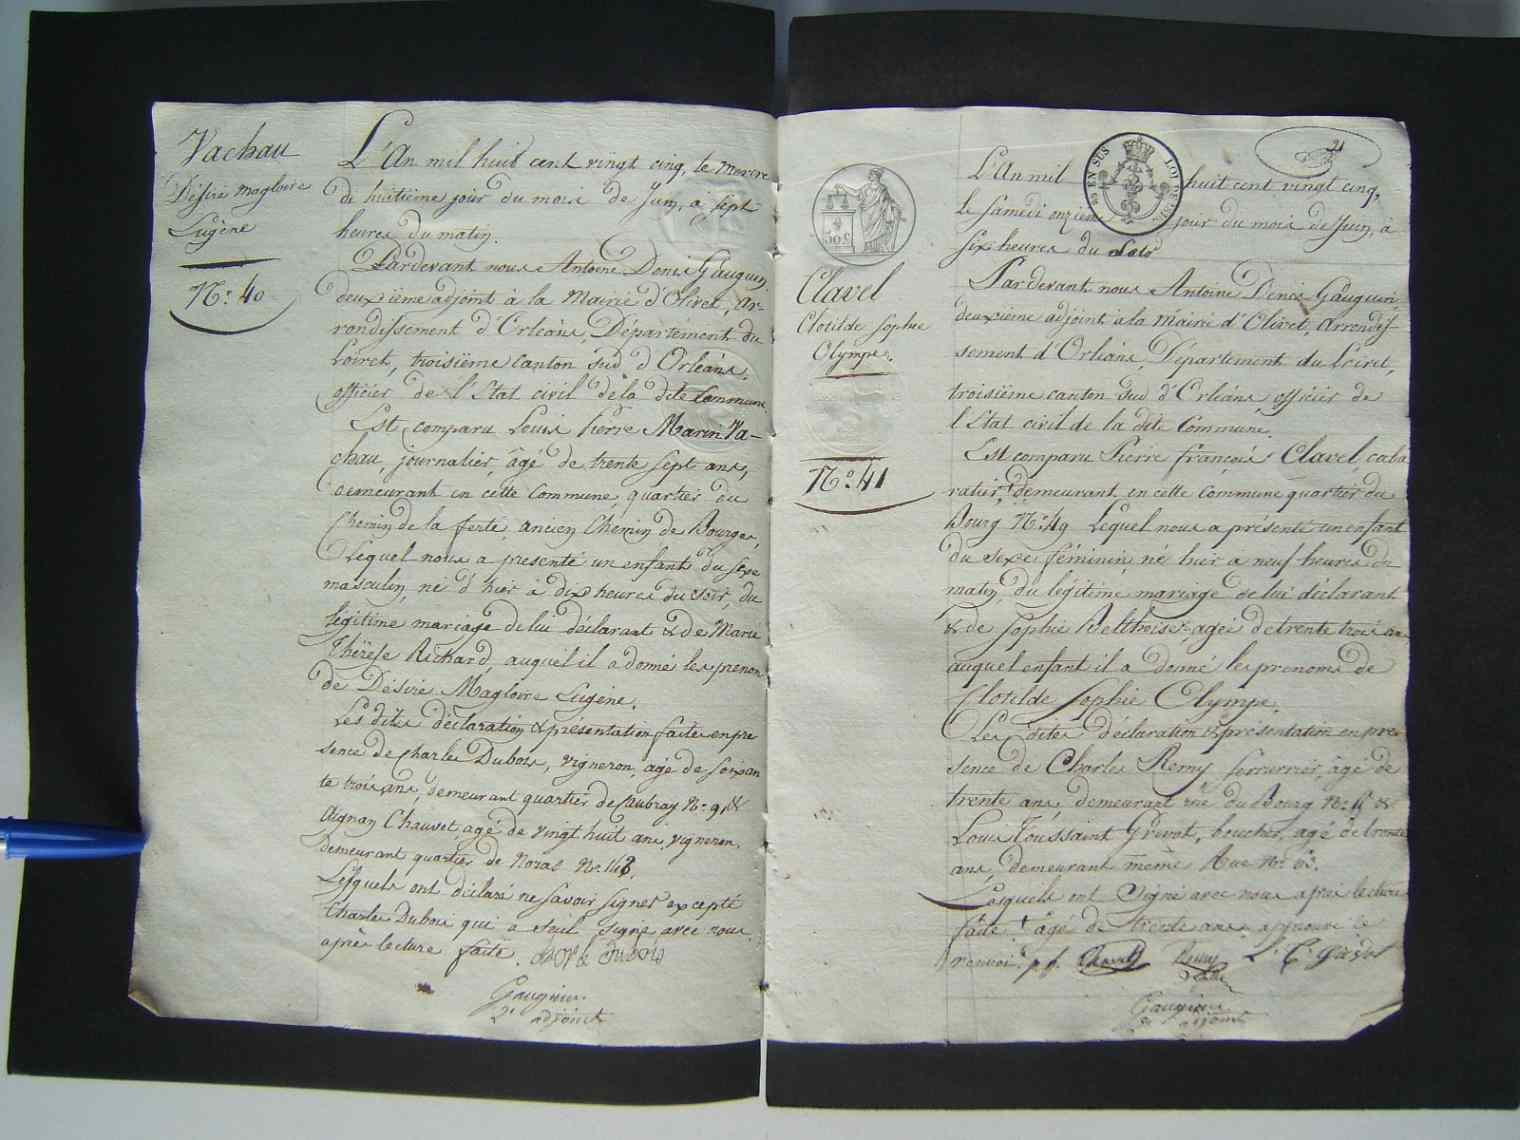 Vachau
Désiré Magloire
Eugène
N.° 40
L'An mil huit cent vingt cinq, le mercre
di huitieme jour du mois de Juin, à sept
heures du matin.
Pardevant nous Antoine Denis Gauguin
deuxième adjoint à la Mairie d'Olivet, ar-
rondissement d'Orléans, Département du
Loiret, troisième canton sud d'Orléans,
officier de l'Etat civil de la dite Commune
Est comparu Louis Pierre Marin Va-
chau, journalier, âgé de trente sept ans,
demeurant en cette Commune quartier du
Chemin de la ferté, ancien Chemin de Bourges,
Lequel nous a présenté un enfant du sexe
masculin, né d'hier à dix heures du soir, du
légitime mariage de lui déclarant & de Marie
Thérèse Richard, auquel il a donné les prenoms
de Désiré Magloire Eugène.
Les dites déclaration & présentation faites en pre
sence de Charles Dubois, vigneron, âgé de soixan
te trois ans, demeurant quartier de Caubray N.° 9, &
Aignan Chauvet, agé de vingt huit ans, vigneron,
demeurant quartier de Noras N.° 148.
Lesquels ont déclaré ne savoir signer excepté
Charles Dubois qui a seul signé avec nous
après lecture faite. Dubois
Gauguin
2e adjoint
21
EN SUS
Clavel
Clotilde Sophie
Olympe.
N.° 41
L'An mil huit cent vingt cinq,
le samedi onzieme jour du mois de Juin, à
six heures du soir
Pardevant nous Antoine Denis Gauguin
deuxième adjoint à la Mairie d'Olivet, arrondis-
sement d'Orléans, Département du Loiret,
troisième canton sud d'Orléans officier de
l'Etat civil de la dite Commune.
Est comparu Pierre françois Clavel, caba
retier, + demeurant en cette Commune quartier du
Bourg N.° 49 Lequel nous a présenté un enfant
du sexe féminin, né hier a neuf heures du
matin, du légitime mariage de lui déclarant
& de Sophie agée de trente trois ans
auquel enfant il a donné les prenoms de
Clotilde Sophie Olympe.
Les dites déclaration & présentation en pre
sence de Charles Remy, serrurier, âgé de
trente ans demeurant rue du Bourg N.° &
Louis Toussaint Grivot, boucher, agé de trente
ans, demeurant même Rue N.° 63.
Lesquels ont signé avec nous après lecture
faite + âgé de trente ans approuvé le
renvoi. p. f. Clavel Remy L. T. Grivot
Gauguin
2e adjoint